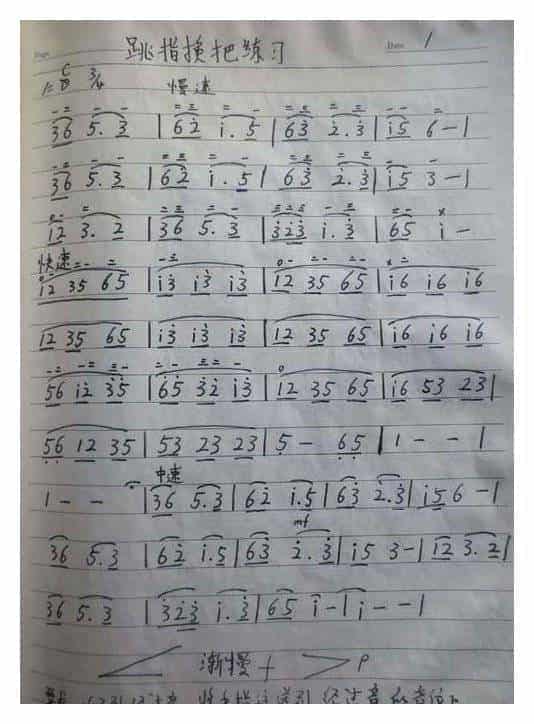 跳指换把练习
Date 1
1=C/D 3/4 慢速
36 5. 3 | 62̇ 1̇. 5 | 63̇ 2̇. 3̇ | 1̇5 6 - |
36 5. 3 | 62̇ 1̇. 5 | 63̇ 2̇. 3̇ | 1̇5 3 - |
12 3. 2 | 36 5. 3 | 3̇2̇3̇ 1̇. 3̇ | 65 1̇ -
快速
12 35 65 | 1̇3̇ 1̇3̇ 1̇3̇ | 12 35 65 | 1̇6 1̇6 1̇6
12 35 65 | 1̇3̇ 1̇3̇ 1̇3̇ | 12 35 65 | 1̇6 1̇6 1̇6
56 1̇2̇ 3̇5̇ | 6̇5̇ 3̇2̇ 1̇3̇ | 12 35 65 | 1̇6 53 23 |
5̣6̣ 12 35 | 53 23 23 | 5 - 6̣5̣ | 1 - - |
中速
1 - - | 36 5. 3 | 62̇ 1̇. 5 | 63̇ 2̇. 3̇ | 1̇5 6 - |
mf
36 5. 3 | 62̇ 1̇. 5 | 63̇ 2̇. 3̇ | 1̇5 3 - | 12 3. 2 |
36 5. 3 | 3̇2̇3̇ 1̇. 3̇ | 65 1̇ - | 1̇ - - |
渐慢 f > P